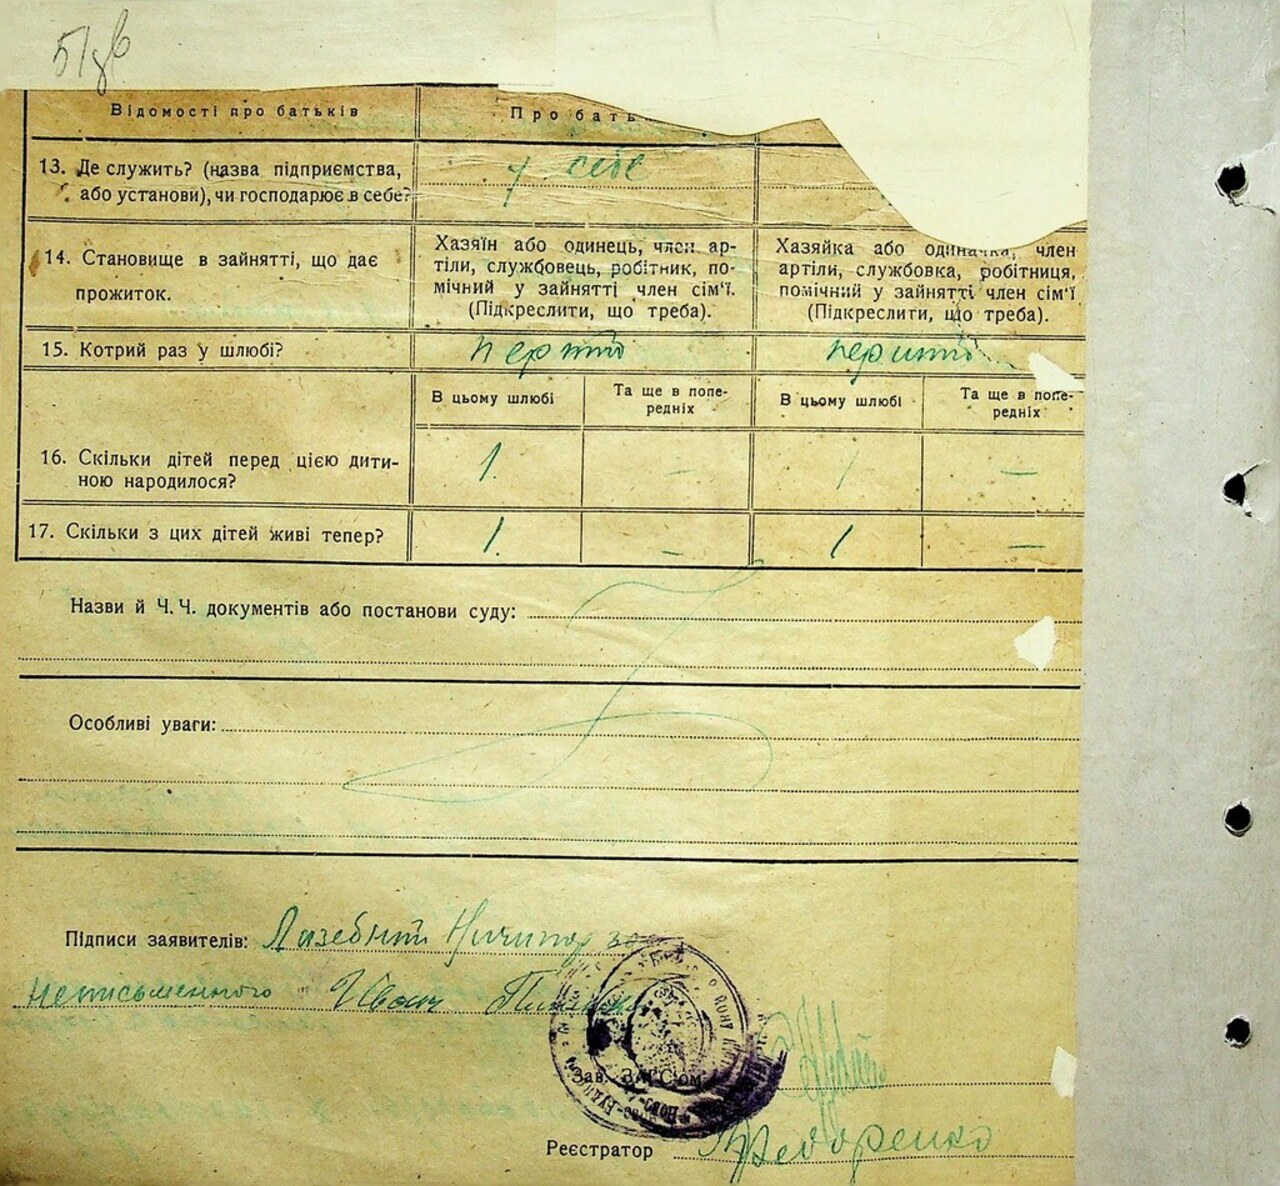 Відомості про батьків
Про бать
13. Де служить? (назва підприємства,
або установи), чи господарює в себе?
у себе
14. Становище в зайнятті, що дає
прожиток.
Хазяїн або одинець, член ар-
тіли, службовець, робітник, по-
мічний у зайнятті член сім'ї.
(Підкреслити, що треба).
Хазяйка або одиначка, член
артіли, службовка, робітниця,
помічний у зайнятті член сім'ї
(Підкреслити, що треба).
15. Котрий раз у шлюбі?
В цьому шлюбі
Та ще в попе-
редніх
В цьому шлюбі
Та ще в попе-
редніх
16. Скільки дітей перед цією дити-
ною народилося?
1. – 1 –
17. Скільки з цих дітей живі тепер?
1. – 1 –
Назви й Ч. Ч. документів або постанови суду:
Особливі уваги:
Підписи заявителів: Лазебний Ничипор за
неписьменного Іван
Зав. ЗАГС'ом
Реєстратор Федоренко